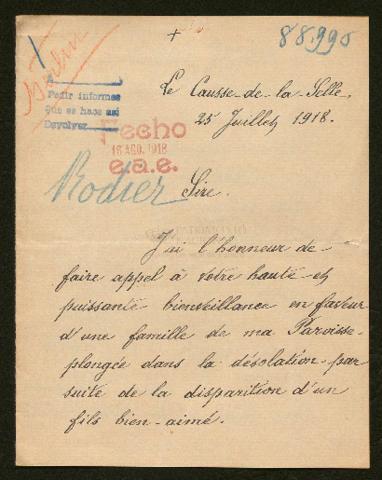 +
88.995
Le Causse-de-la-Selle,
25 Juillet 1918.
Pedir informes
que se hace así
Devolver
Fecho
16 AGO. 1918
e.a.e.
Rodier
Sire.
J'ai l'honneur de-
faire appel à votre haute et
puissante bienveillance en faveur
d'une famille de ma Paroisse
plongée dans la désolation par
suite de la disparition d'un
fils bien-aimé.